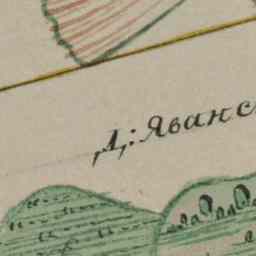 Д: Яванс